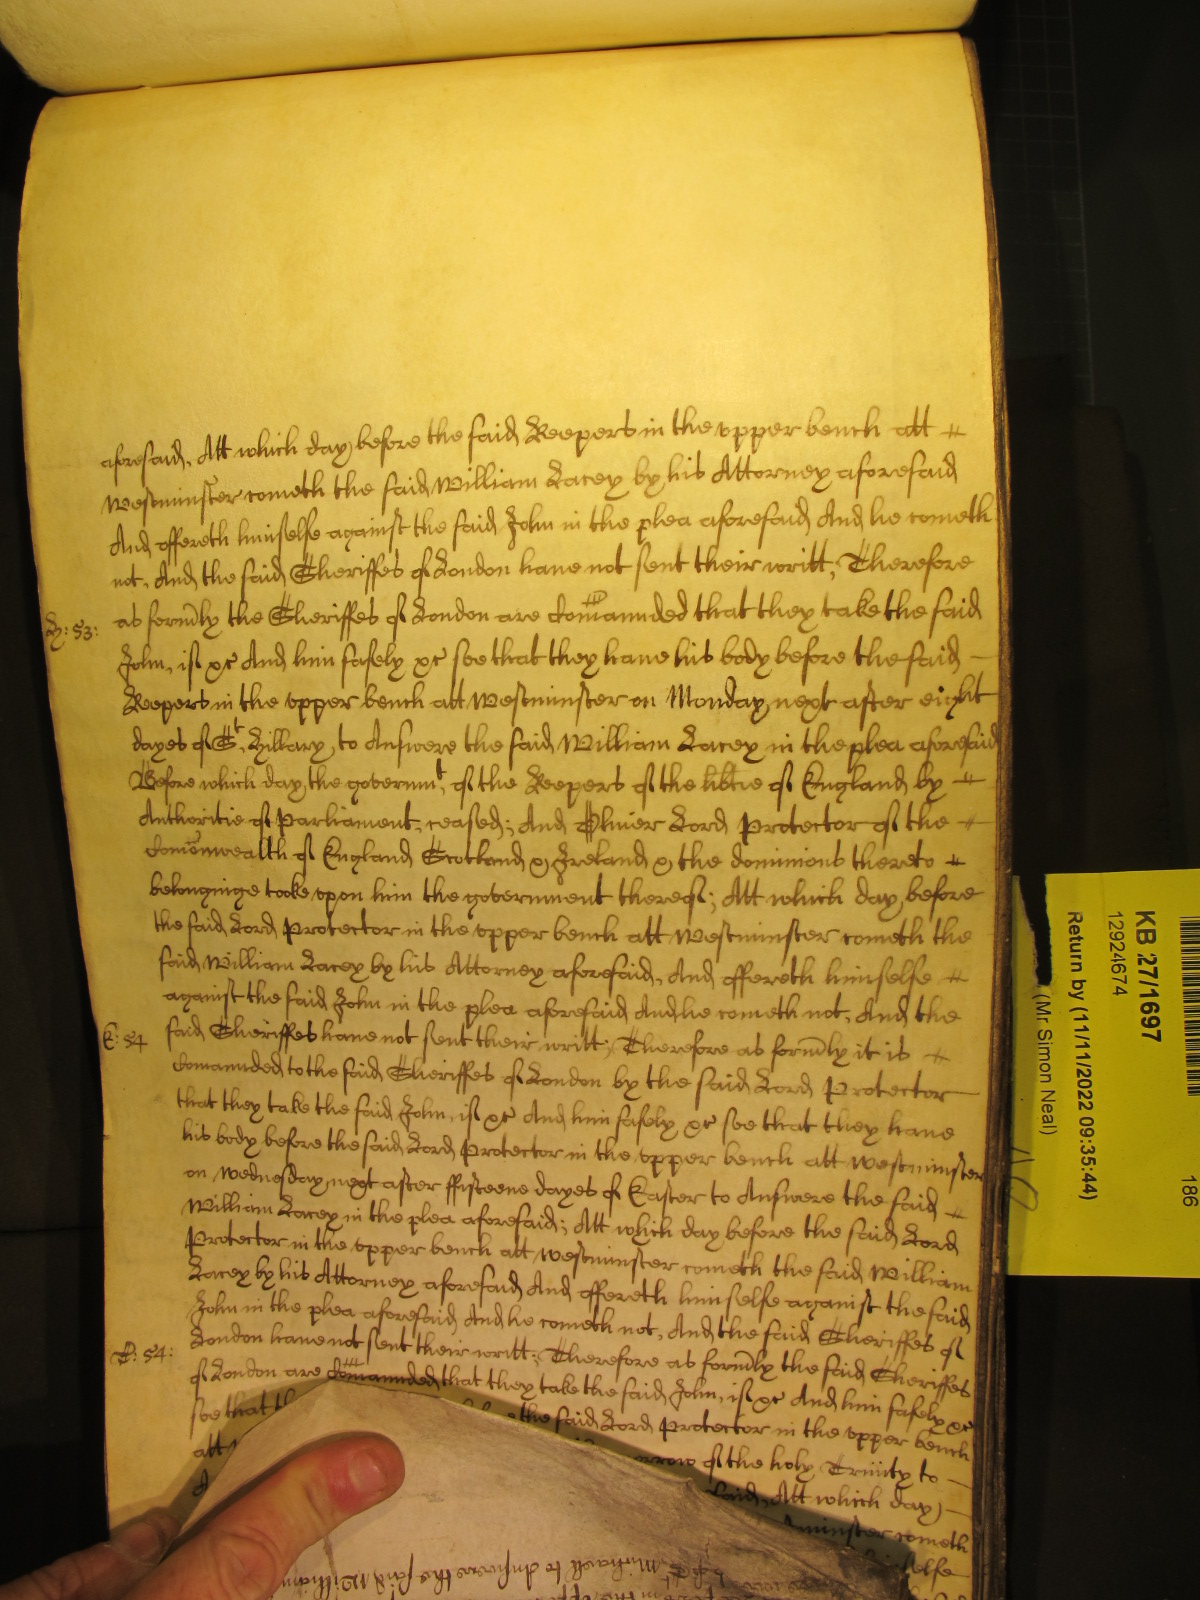 aforesaid, Att which day before the said Keepers in the vpper bench att
Westminster cometh the said William Lacey by his Attorney aforesaid
And offereth himselfe against the said John in the plea aforesaid And he cometh
not, And the said Sheriffes of London haue not sent their writt; Therefore
H: 53:
as form̄ly the Sheriffes of London are Com̄aunded that they take the said
John, if &c And him safely &c soe that they haue his body before the said
Keepers in the vpper bench att Westminster on Monday next after eight
dayes of St. Hillary, to Answere the said William Lacey in the plea aforesaid
Before which day the governmt, of the Keepers of the lib̄tie of England by
Authoritie of Parliament, ceased; And Oliuer Lord Protector of the
Com̄onwealth of England Scotland & Ireland & the dominions thereto
belonginge tooke vpon him the government thereof; Att which day before
the said Lord Protector in the vpper bench att Westminster cometh the
said William Lacey by his Attorney aforesaid, And offereth himselfe
against the said John in the plea aforesaid And he cometh not, And the
E: 54
said Sheriffes haue not sent their writt; Therefore as form̄ly it is
Com̄aunded to the said Sheriffes of London by the said Lord Protector
that they take the said John, if &c And him safely &c soe that they haue
his body before the said Lord Protector in the vpper bench att Westminster
on Wednesday next after ffifteene dayes of Easter to Answere the said
William Lacey in the plea aforesaid; Att which day before the said Lord
Protector in the vpper bench att Westminster cometh the said William
Lacey by his Attorney aforesaid And offereth himselfe against the said
John in the plea aforesaid And he cometh not, And the said Sheriffes of
London haue not sent their writt; Therefore as form̄ly the said Sheriffes
T: 54:
of London are Com̄aunded that they take the said John, if &c And him safely &c
soe that the said Lord Protector in the vpper bench
att of the holy Trinity to
said, Att which day
cometh
Michaell to Answere the said William
KB 27/1697
12924674
Return by (11/11/2022 09:35:44)
(Mr. Simon Neal)
186